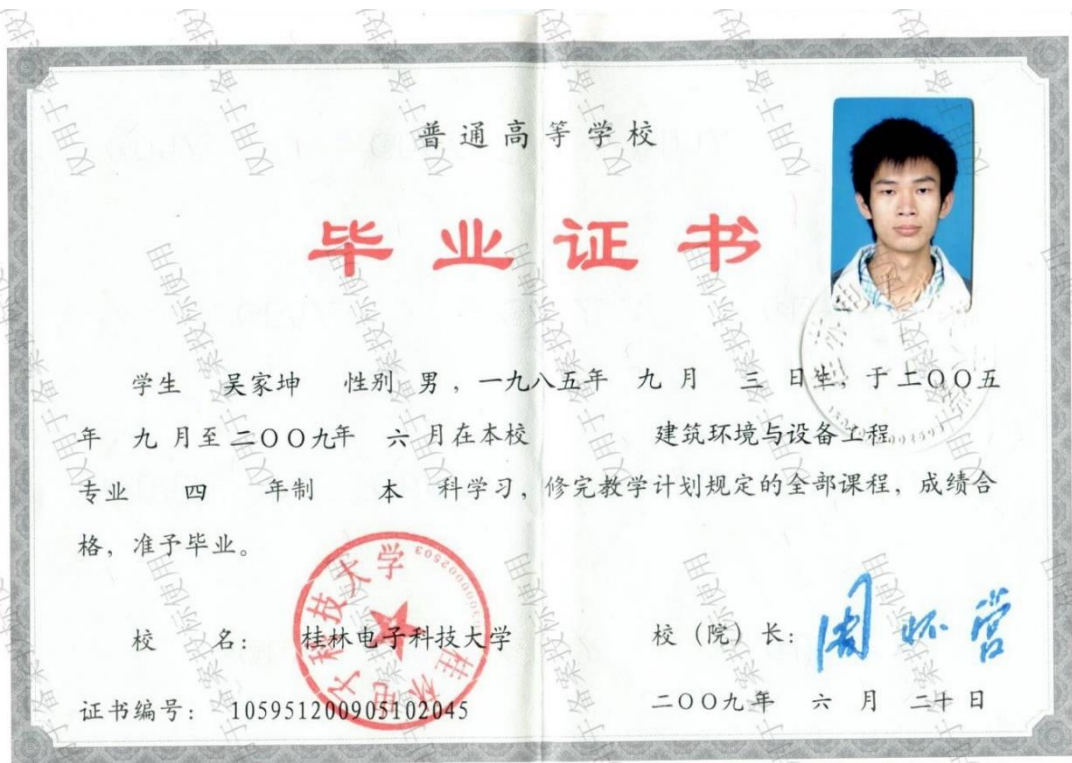 普通高等学校
毕业证书
学生 吴家坤 性别 男，一九八五年 九 月 三 日生，于二〇〇五
年 九 月至二〇〇九年 六 月在本校 建筑环境与设备工程
专业 四 年制 本 科学习，修完教学计划规定的全部课程，成绩合
格，准予毕业。
校 名： 桂林电子科技大学
校（院）长： 周怀营
证书编号： 105951200905102045
二〇〇九年 六 月 二十日
桂林电子科技大学
仅用于备案投标使用